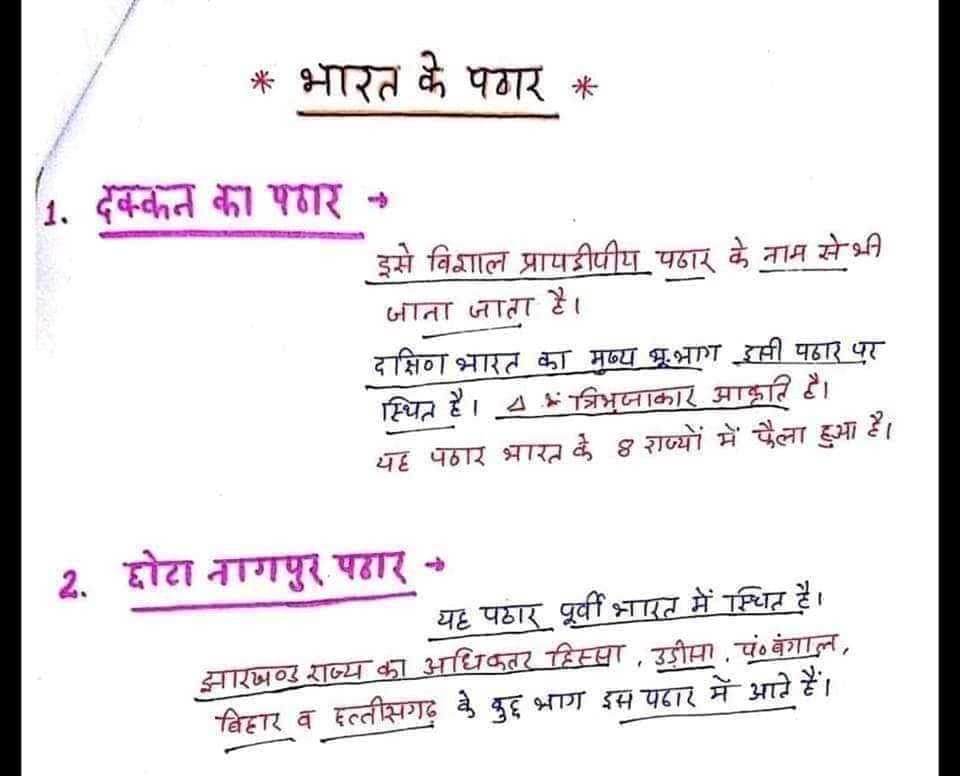 * भारत के पठार *
1. दक्कन का पठार →
इसे विशाल प्रायद्वीपीय पठार के नाम से भी
जाना जाता है।
दक्षिण भारत का मुख्य भू-भाग इसी पठार पर
स्थित है। △ त्रिभुजाकार आकृति है।
यह पठार भारत के 8 राज्यों में फैला हुआ है।
2. छोटा नागपुर पठार →
यह पठार पूर्वी भारत में स्थित है।
झारखण्ड राज्य का अधिकतर हिस्सा, उड़ीसा, पं० बंगाल,
बिहार व छत्तीसगढ़ के कुछ भाग इस पठार में आते हैं।